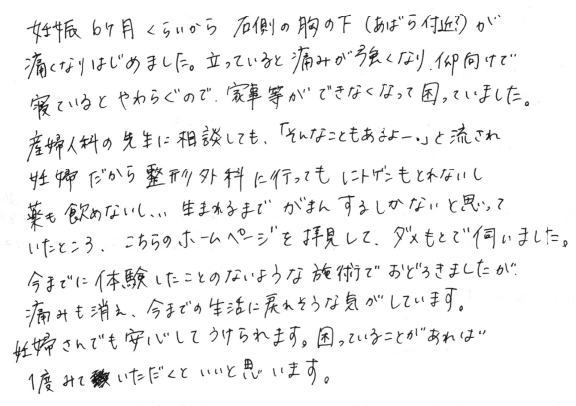 妊娠6ヶ月くらいから 右側の胸の下(あばら付近?)が
痛くなりはじめました。立っていると痛みが強くなり、仰向けで
寝ているとやわらぐので、家事等ができなくなって困っていました。
産婦人科の先生に相談しても、「そんなこともあるよー。」と流され
妊婦だから整形外科に行ってもレントゲンもとれないし
薬も飲めないし... 生まれるまでがまんするしかないと思って
いたところ、こちらのホームページを拝見して、ダメもとで伺いました。
今までに体験したことのないような施術でおどろきましたが、
痛みも消え、今までの生活に戻れそうな気がしています。
妊婦さんでも安心してうけられます。困っていることがあれば
1度みていただくといいと思います。